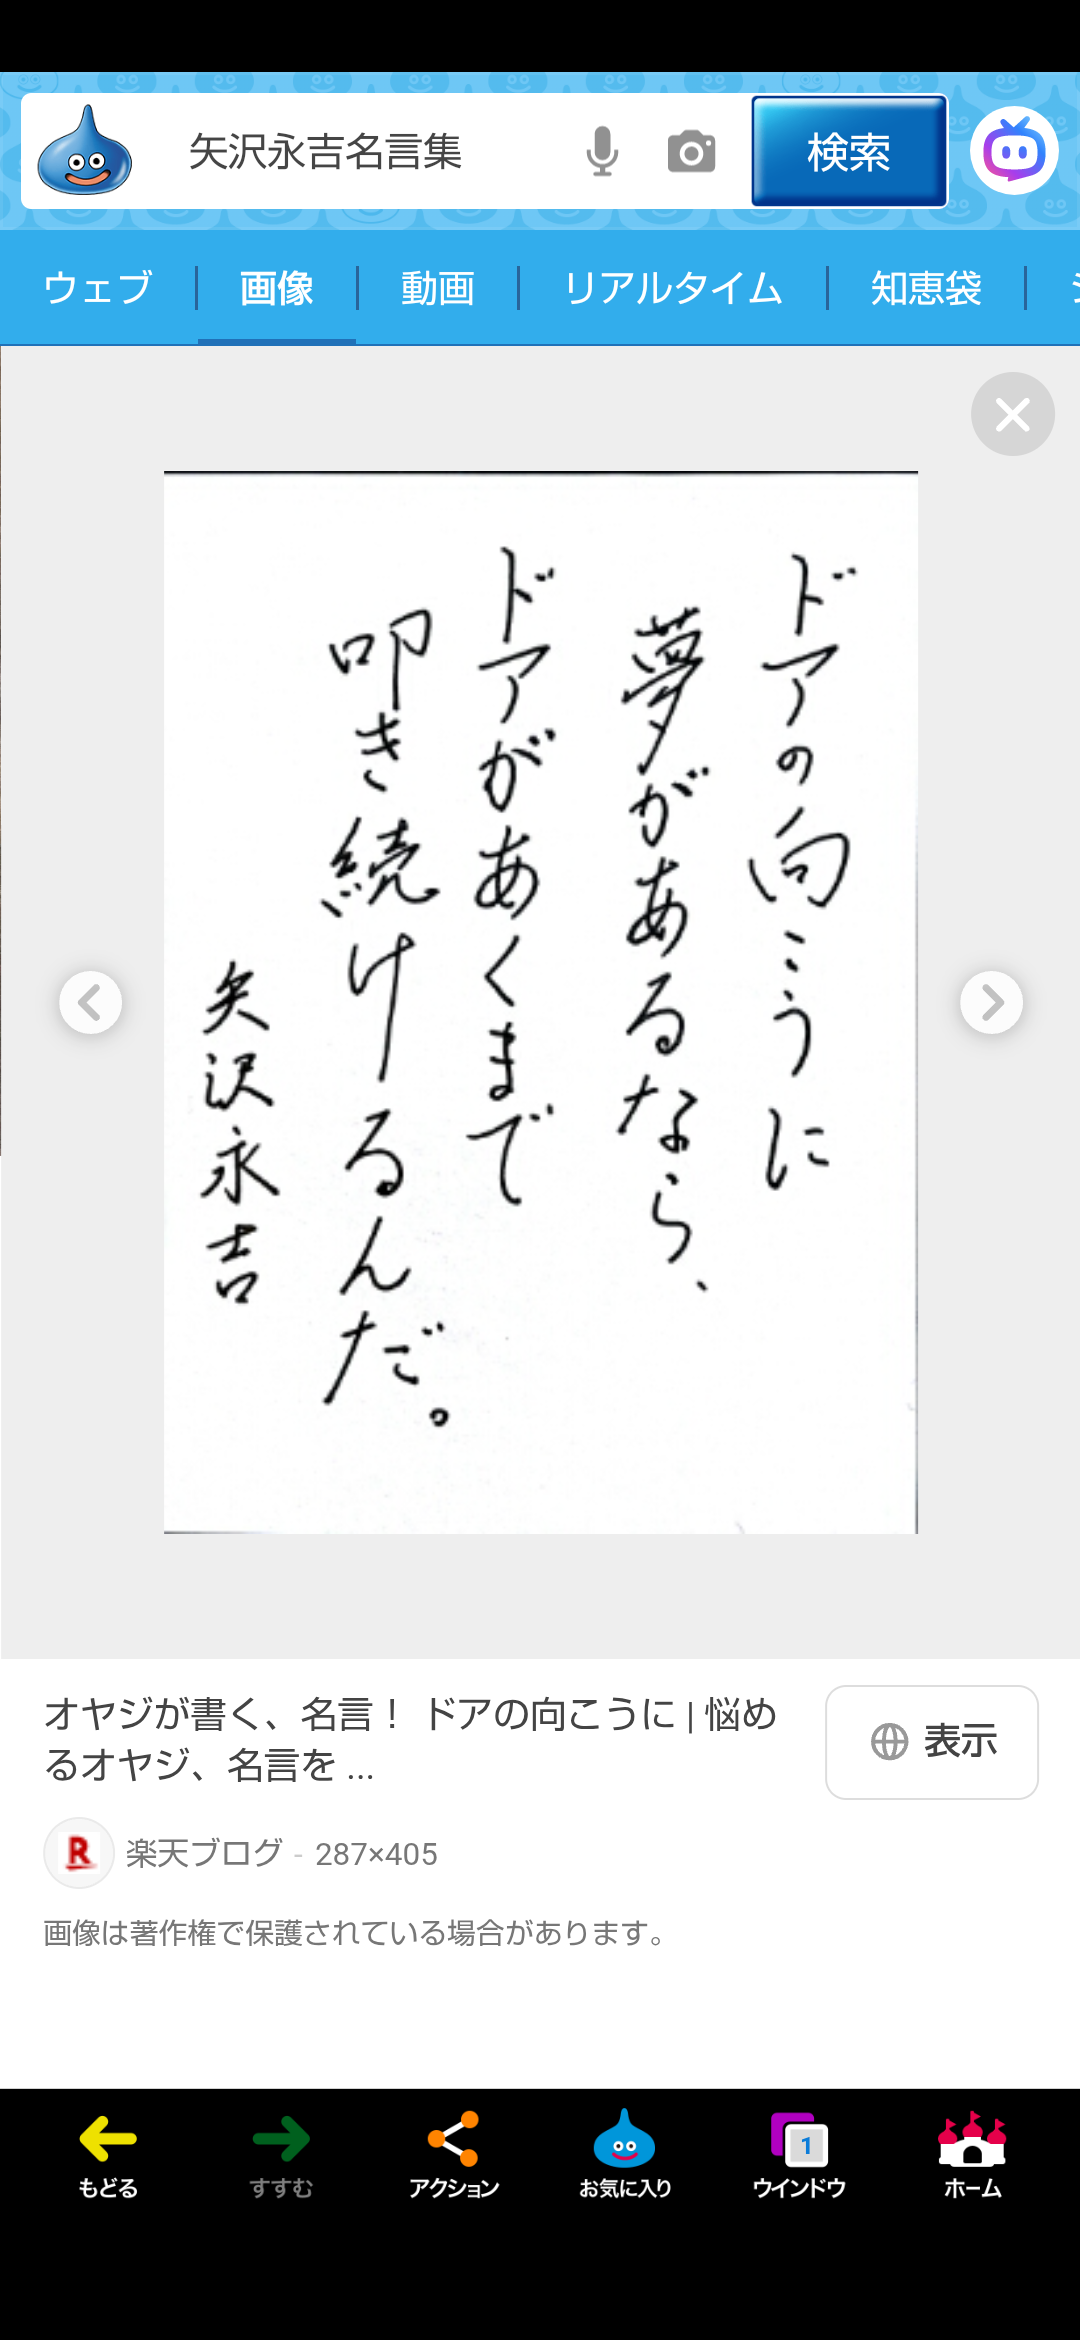 矢沢永吉名言集
検索
ウェブ
画像
動画
リアルタイム
知恵袋
ドアの向こうに
夢があるなら、
ドアがあくまで
叩き続けるんだ。
矢沢永吉
オヤジが書く、名言！ ドアの向こうに | 悩め
るオヤジ、名言を ...
表示
R 楽天ブログ - 287×405
画像は著作権で保護されている場合があります。
もどる
すすむ
アクション
お気に入り
1
ウインドウ
ホーム